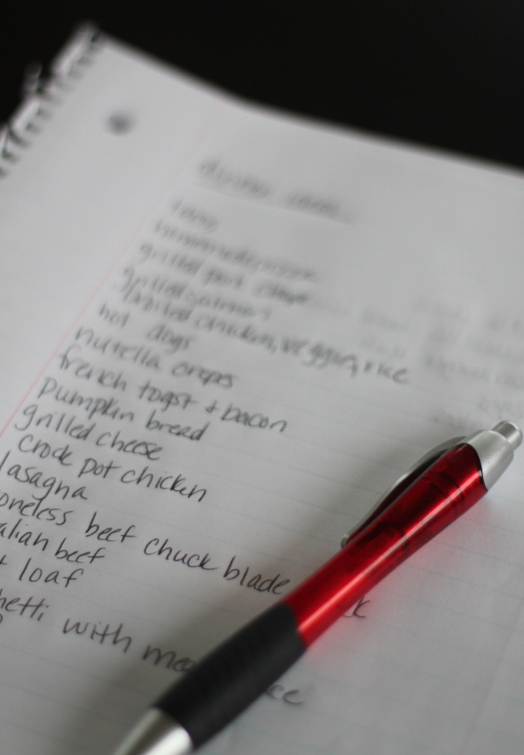 dinner ideas
tacos
homemade pizza
grilled pork chops
grilled salmon
grilled chicken, veggies, rice
hot dogs
nutella crepes
french toast + bacon
pumpkin bread
grilled cheese
crock pot chicken
lasagna
oneless beef chuck blade
alian beef
loaf
hetti with